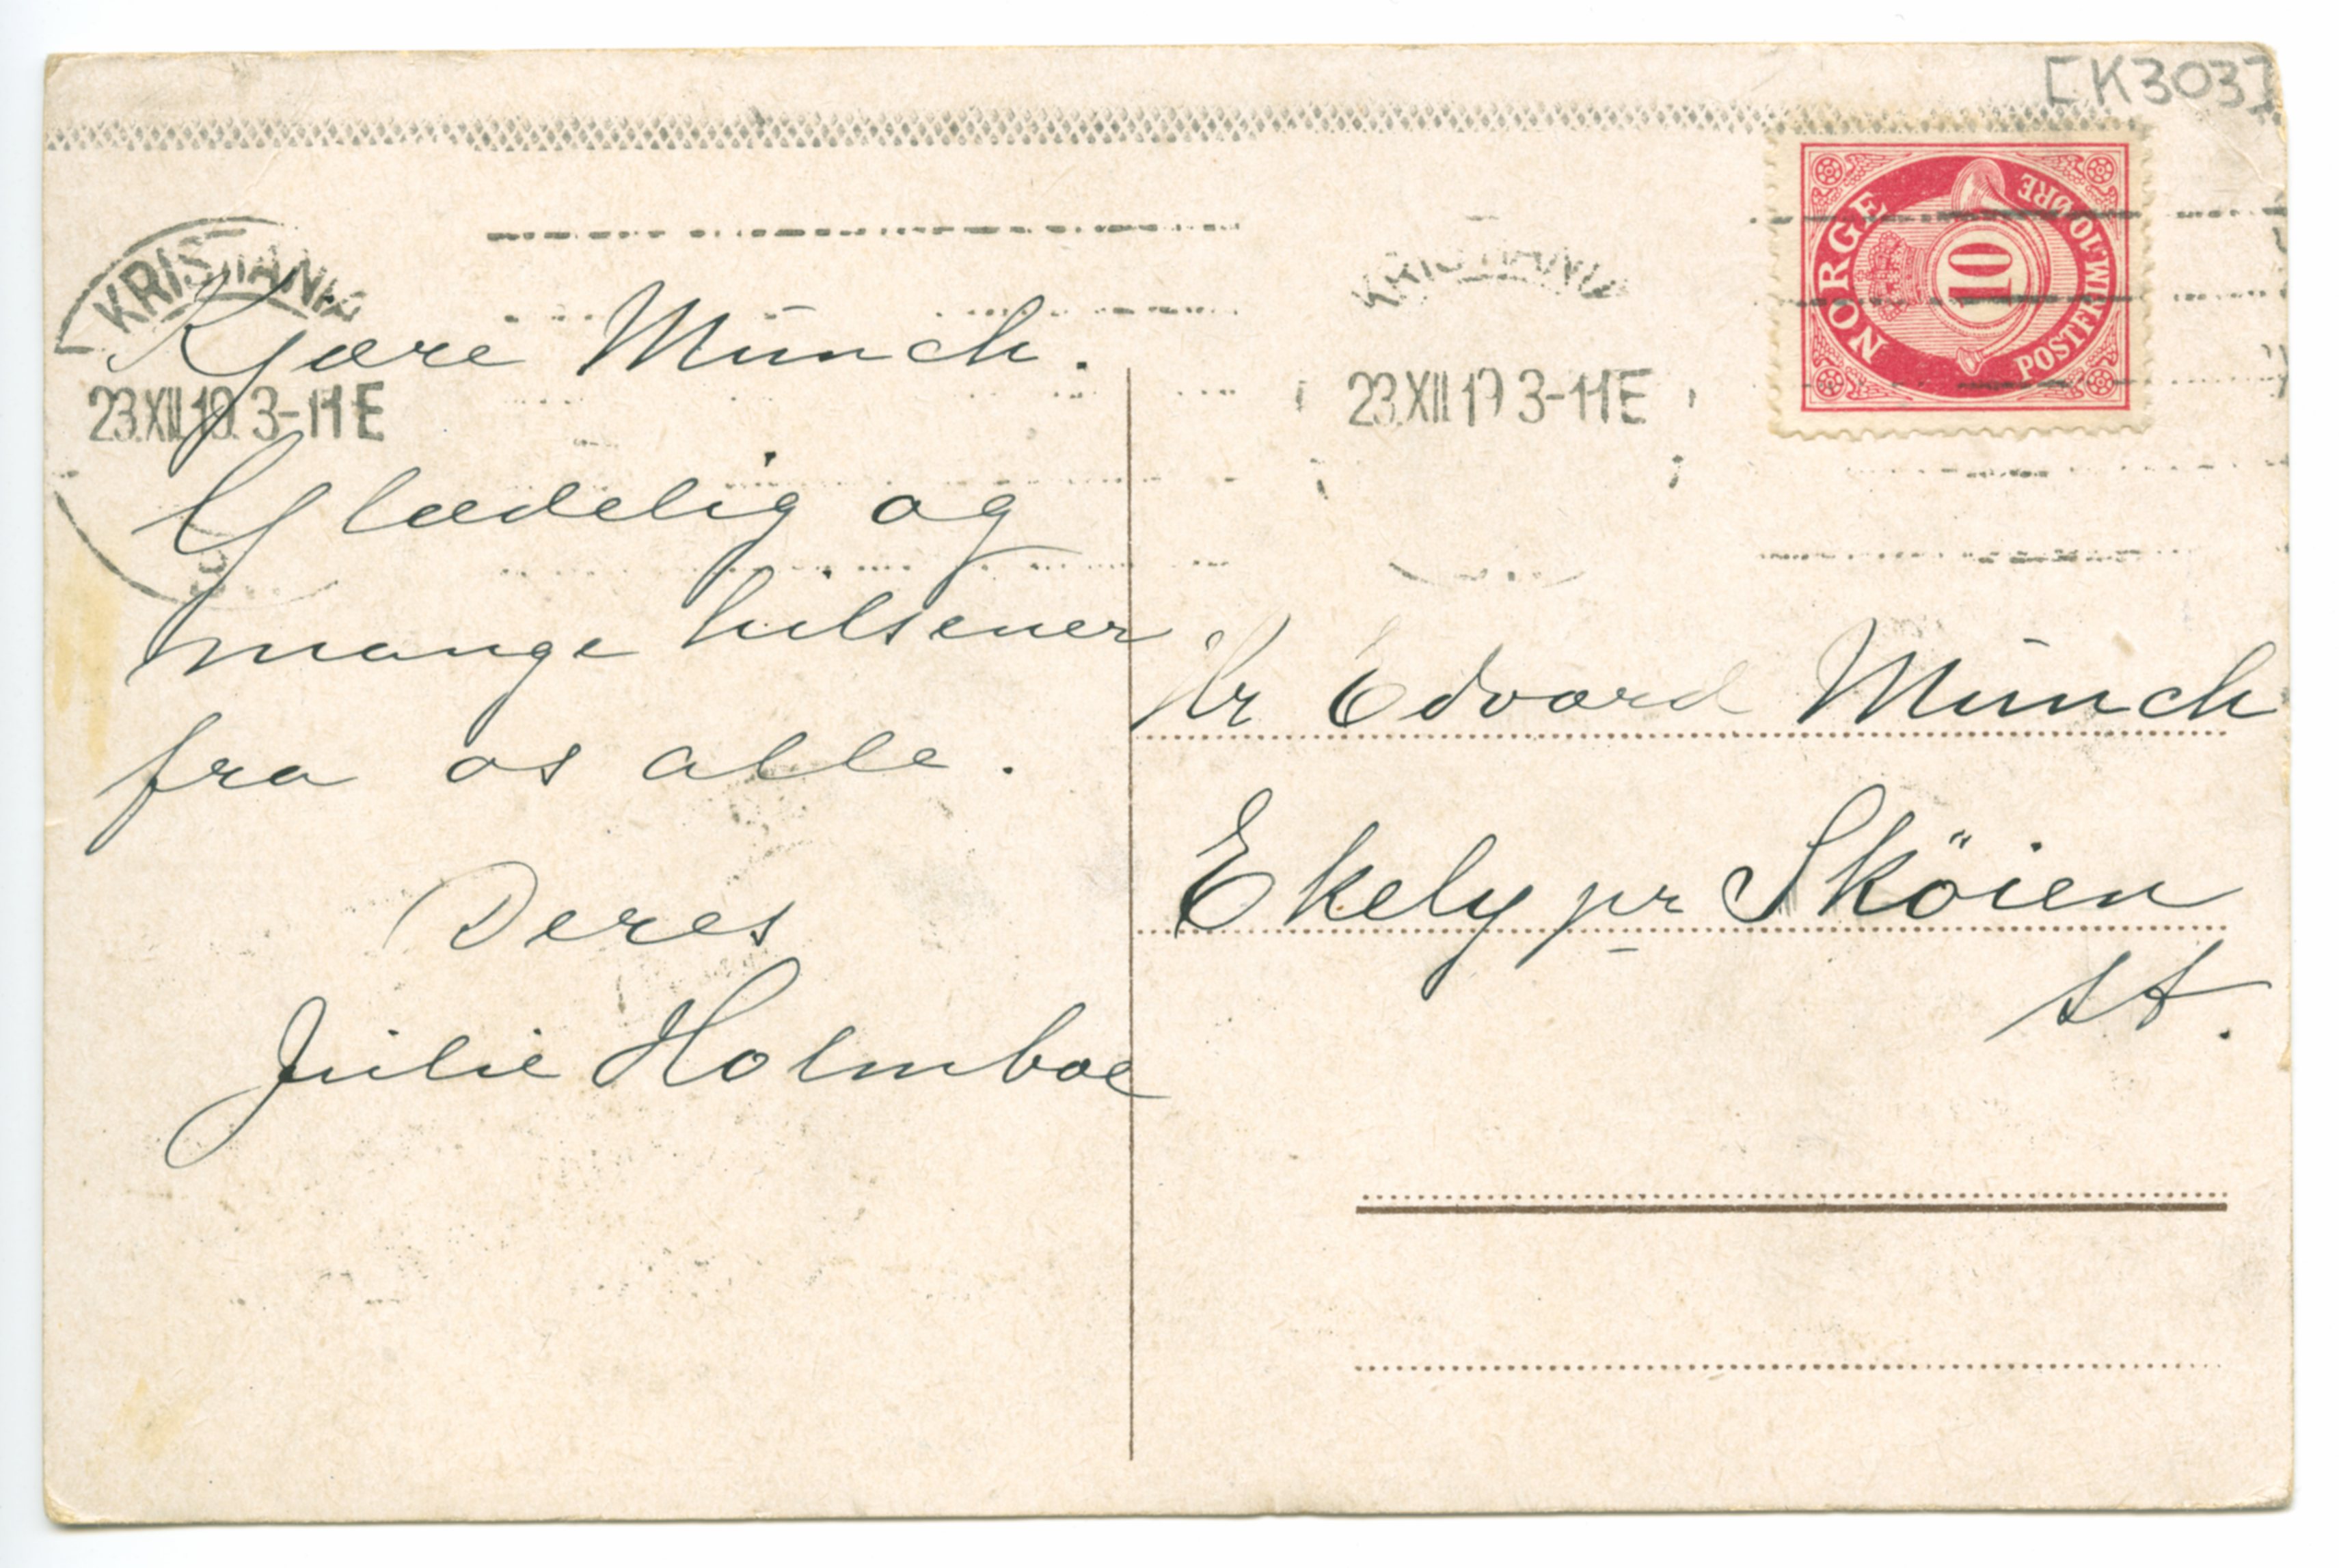 [K303]
NORGE
POSTFRIM. 10 ØRE
10
KRISTIANIA
23.XII.19. 3-11 E
KRISTIANIA
23.XII 19 3-11 E
Kjære Munch.
Glædelig og
mange hilsener
fra os alle.
Deres
Julie Holmboe
Hr Edvard Munch
Ekely pr Sköien
st.